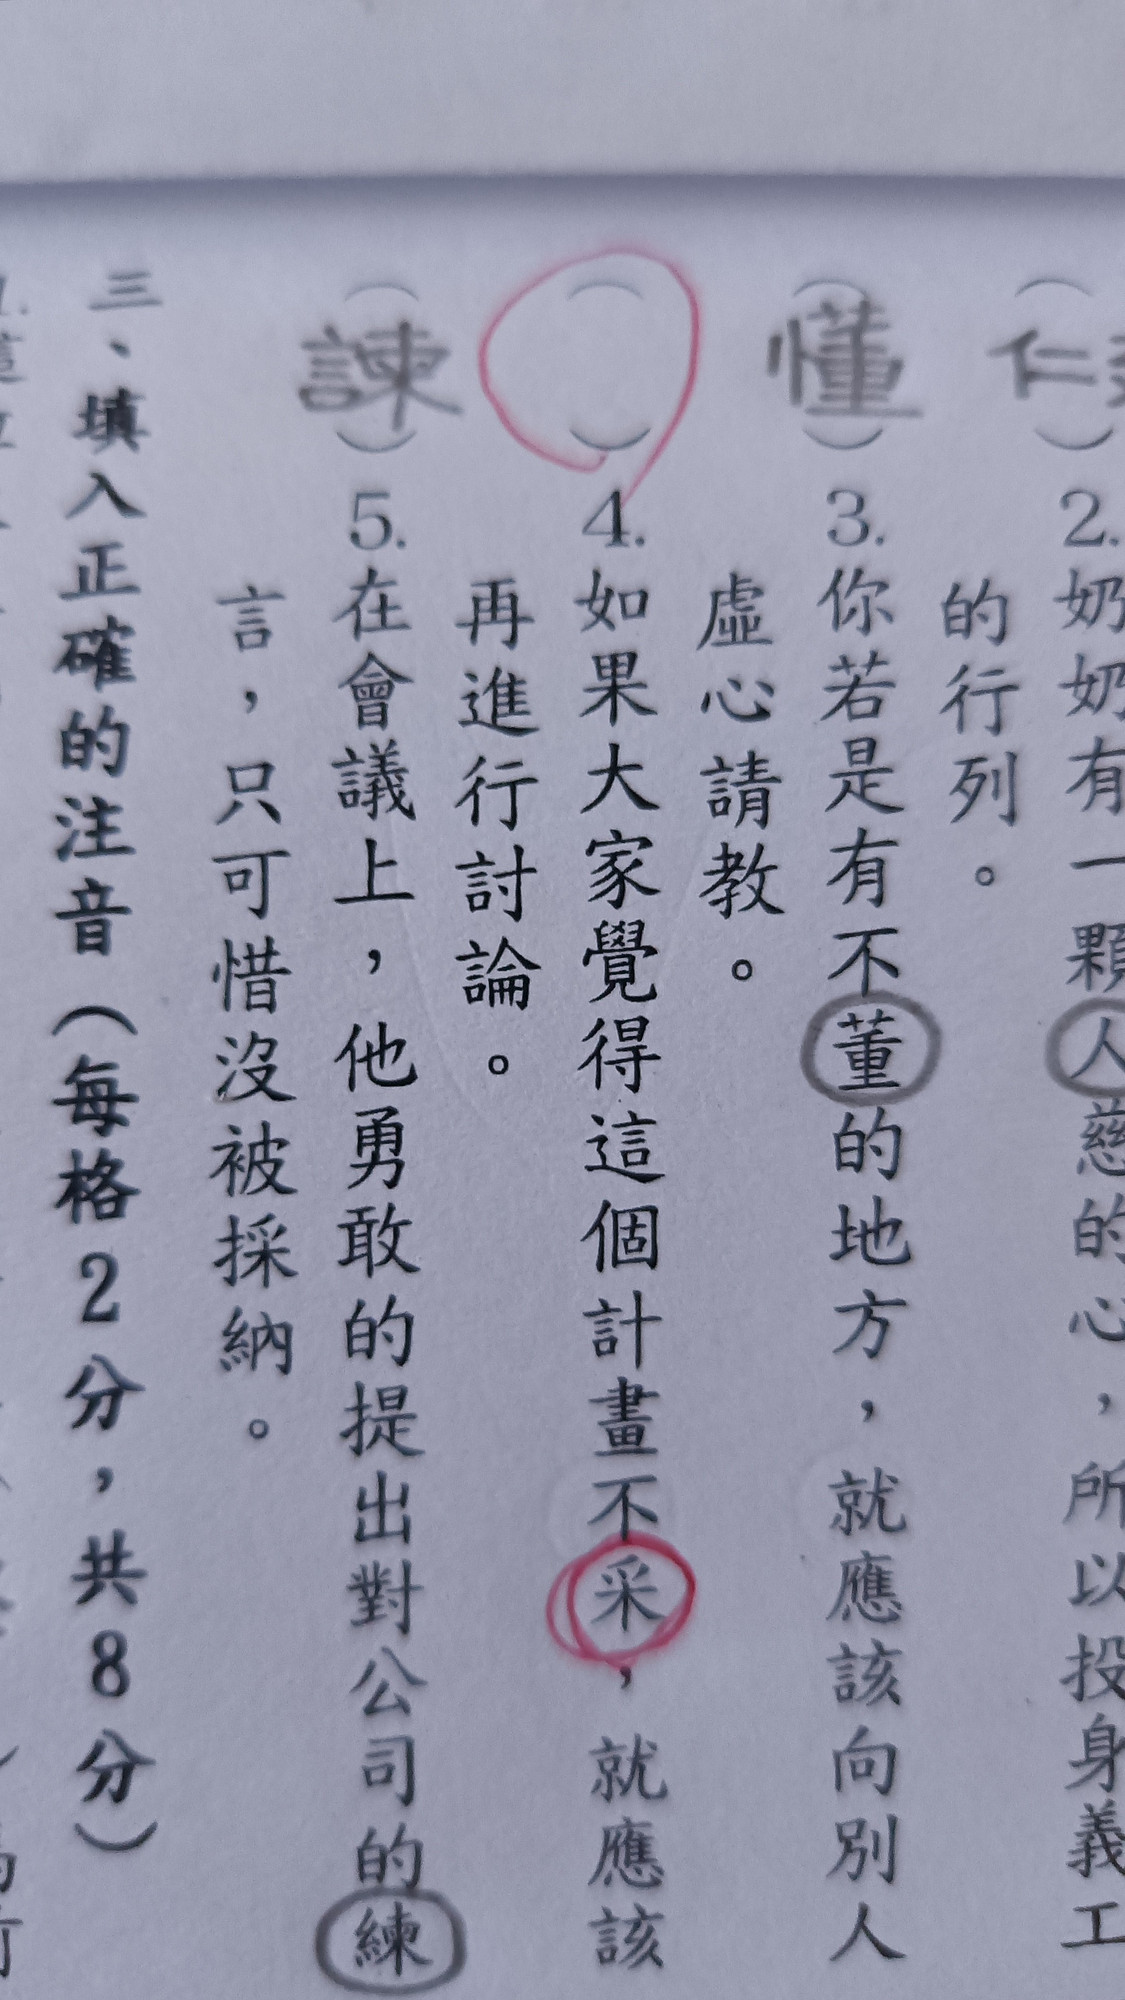 仁
2.奶奶有一顆人慈的心，所以投身義工
的行列。
(懂)3.你若是有不董的地方，就應該向別人
虛心請教。
( )4.如果大家覺得這個計畫不采，就應該
再進行討論。
(諫)5.在會議上，他勇敢的提出對公司的練
言，只可惜沒被採納。
三、填入正確的注音（每格2分，共8分）